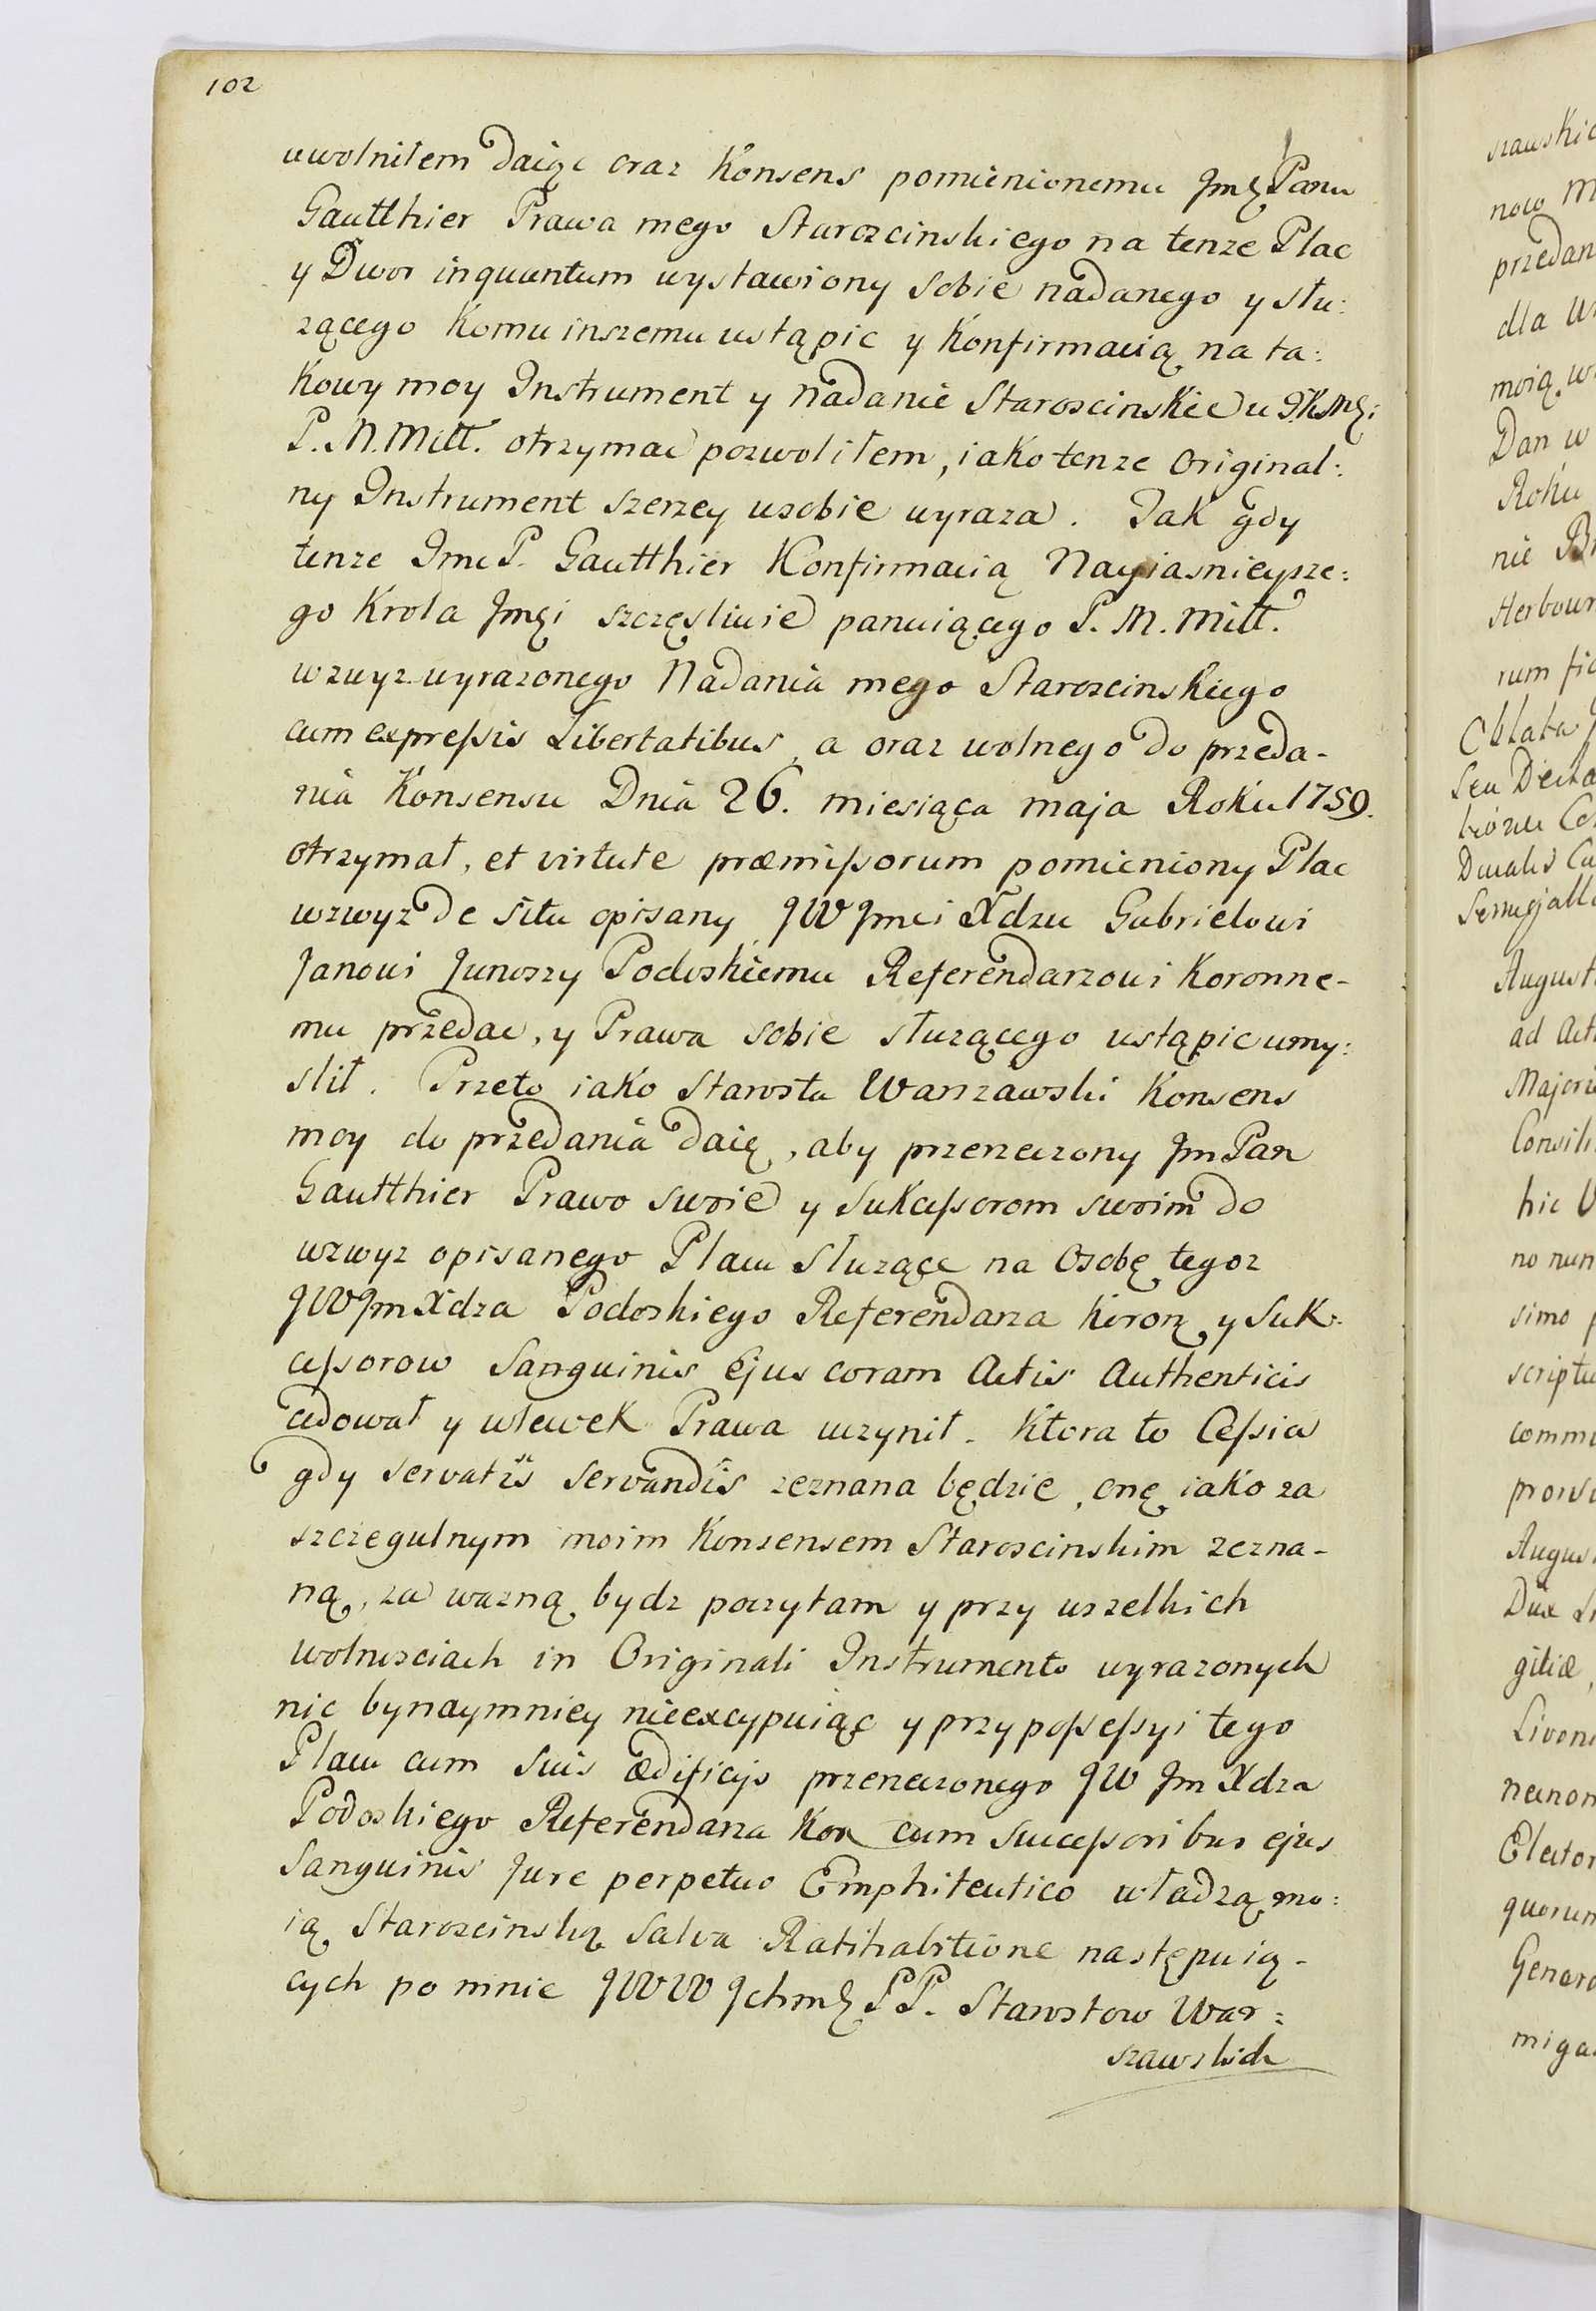 102
uwolniłem daiąc oraz Konsens pomienionemu Jmę Panu
Gautthier Prawa mego Staroscinskiego na tenze Plac
y Dwor inquantum wystawiony sobie nadanego y słu:
zącego komu inszemu ustąpic y Konfirmacią na ta:
kowy moy Instrument y nadanie Staroscinskie u JKMę:
P. M. Mitt. otrzymac pozwoliłem, iako tenze original:
ny Instrument szerzey w sobie wyraza. Jak gdy
tenze Jmc P. Gautthier Konfirmacią Nayiasnieysze:
go Krola Jmęi szczęsliwie panuiącego P. M. Mitt.
wzwyz wyrazonego Nadania mego Staroscinskiego
cum expressis Libertatibus, a oraz wolnego do przeda-
nia Konsensu Dnia 26. miesiąca maja Roku 1759.
otrzymał, et virtute præmissorum pomieniony Plac
wzwyz de situ opisany JW Jmci Xdzu Gabrielowi
Janowi Junoszy Podoskiemu Referendarzowi Koronne-
mu przedac, y Prawa sobie słuzącego ustąpic umy:
slił. Przeto iako Starosta Warszawski Konsens
moy do przedania daię, aby przerzeczony Jm Pan
Gautthier Prawo swoie y Sukcessorom swoim do
wzwyz opisanego Placu słuzące na Osobę tegoz
JW Jm Xdza Podoskiego Referendarza Koron y Suk-
cessorow Sanguinis Ejus coram Actis Authenticis
cedował y wlewek Prawa uczynił. Ktora to Cessia
gdy servatis servandis zeznana będzie, onę iako za
szczegulnym moim Konsensem Staroscinskim zezna-
ną, za wazną bydz poczytam y przy wszelkich
wolnosciach in Originali Instrumento wyrazonych
nic bynaymniey nieexcypuiąc y przy possessyi tego
Placu cum suis ædificijs przerzeczonego JW Jm Xdza
Podoskiego Referendarza Kor cum successoribus ejus
Sanguinis Jure perpetuo Emphiteutico władzą mo:
ią Staroscinską Salva Ratihabitione następuią-
cych po mnie JWW Jchmę PP. Starostow War:
szawskich
szawskic
now
przedan
dla
moią
Dan w
Roku
nie
Herbowr
rum
Oblata
Seu
August
ad Act
Majori
hic
no nun
simo
scriptu
commu
Augus
Dux
gitiæ,
Livoni
necnon
Elector
quorum
miga